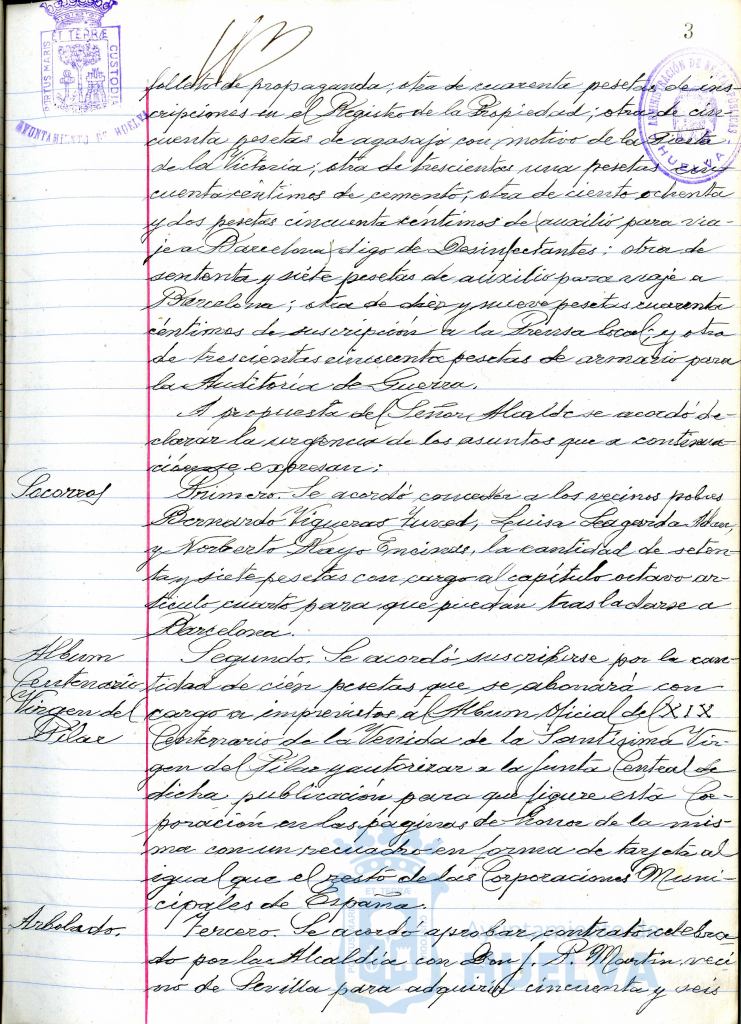 3
PORTUS MARIS ET TERRÆ CUSTODIA
AYUNTAMIENTO DE HUELVA
HUELVA
folleto de propaganda; otra de cuarenta pesetas de ins-
cripciones en el Registro de la Propiedad; otra de cin-
cuenta pesetas de agasajo con motivo de la Fiesta
de la Victoria; otra de trescientas una pesetas cin-
cuenta céntimos de cemento; otra de ciento ochenta
y dos pesetas cincuenta céntimos de (auxilio para via-
je a Barcelona) digo de Desinfectantes; otra de
sententa y siete pesetas de auxilio para viaje a
Barcelona; otra de diez y nueve pesetas cuarenta
céntimos de suscripción a la Prensa local; y otra
de trescientas cincuenta pesetas de armario para
la Auditoria de Guerra.
A propuesta del Señor Alcalde se acordó de-
clarar la urgencia de los asuntos que a continua-
ción se expresan:
Socorros
Primero. Se acordó conceder a los vecinos pobres
Bernardo Vigueras, Luisa
y Norberto Rayo Encinas, la cantidad de seten-
ta y siete pesetas con cargo al capítulo octavo ar-
tículo cuarto para que puedan trasladarse a
Barcelona.
Album
Centenario
Virgen del
Pilar
Segundo. Se acordó suscribirse por la can-
tidad de cién pesetas que se abonará con
cargo a imprevistos al Album Oficial del XIX
Centenario de la Venida de la Santísima Vir-
gen del Pilar y autorizar a la Junta Central de
dicha publicación para que figure esta Cor-
poración en las páginas de honor de la mis-
ma con un recuadro en forma de tarjeta al
igual que el resto de las Corporaciones Muni-
cipales de España.
Arbolado.
Tercero. Se acordó aprobar contrato celebra-
do por la Alcaldía con Don J. P. Martin, veci-
no de Sevilla para adquirir cincuenta y seis
HUELVA